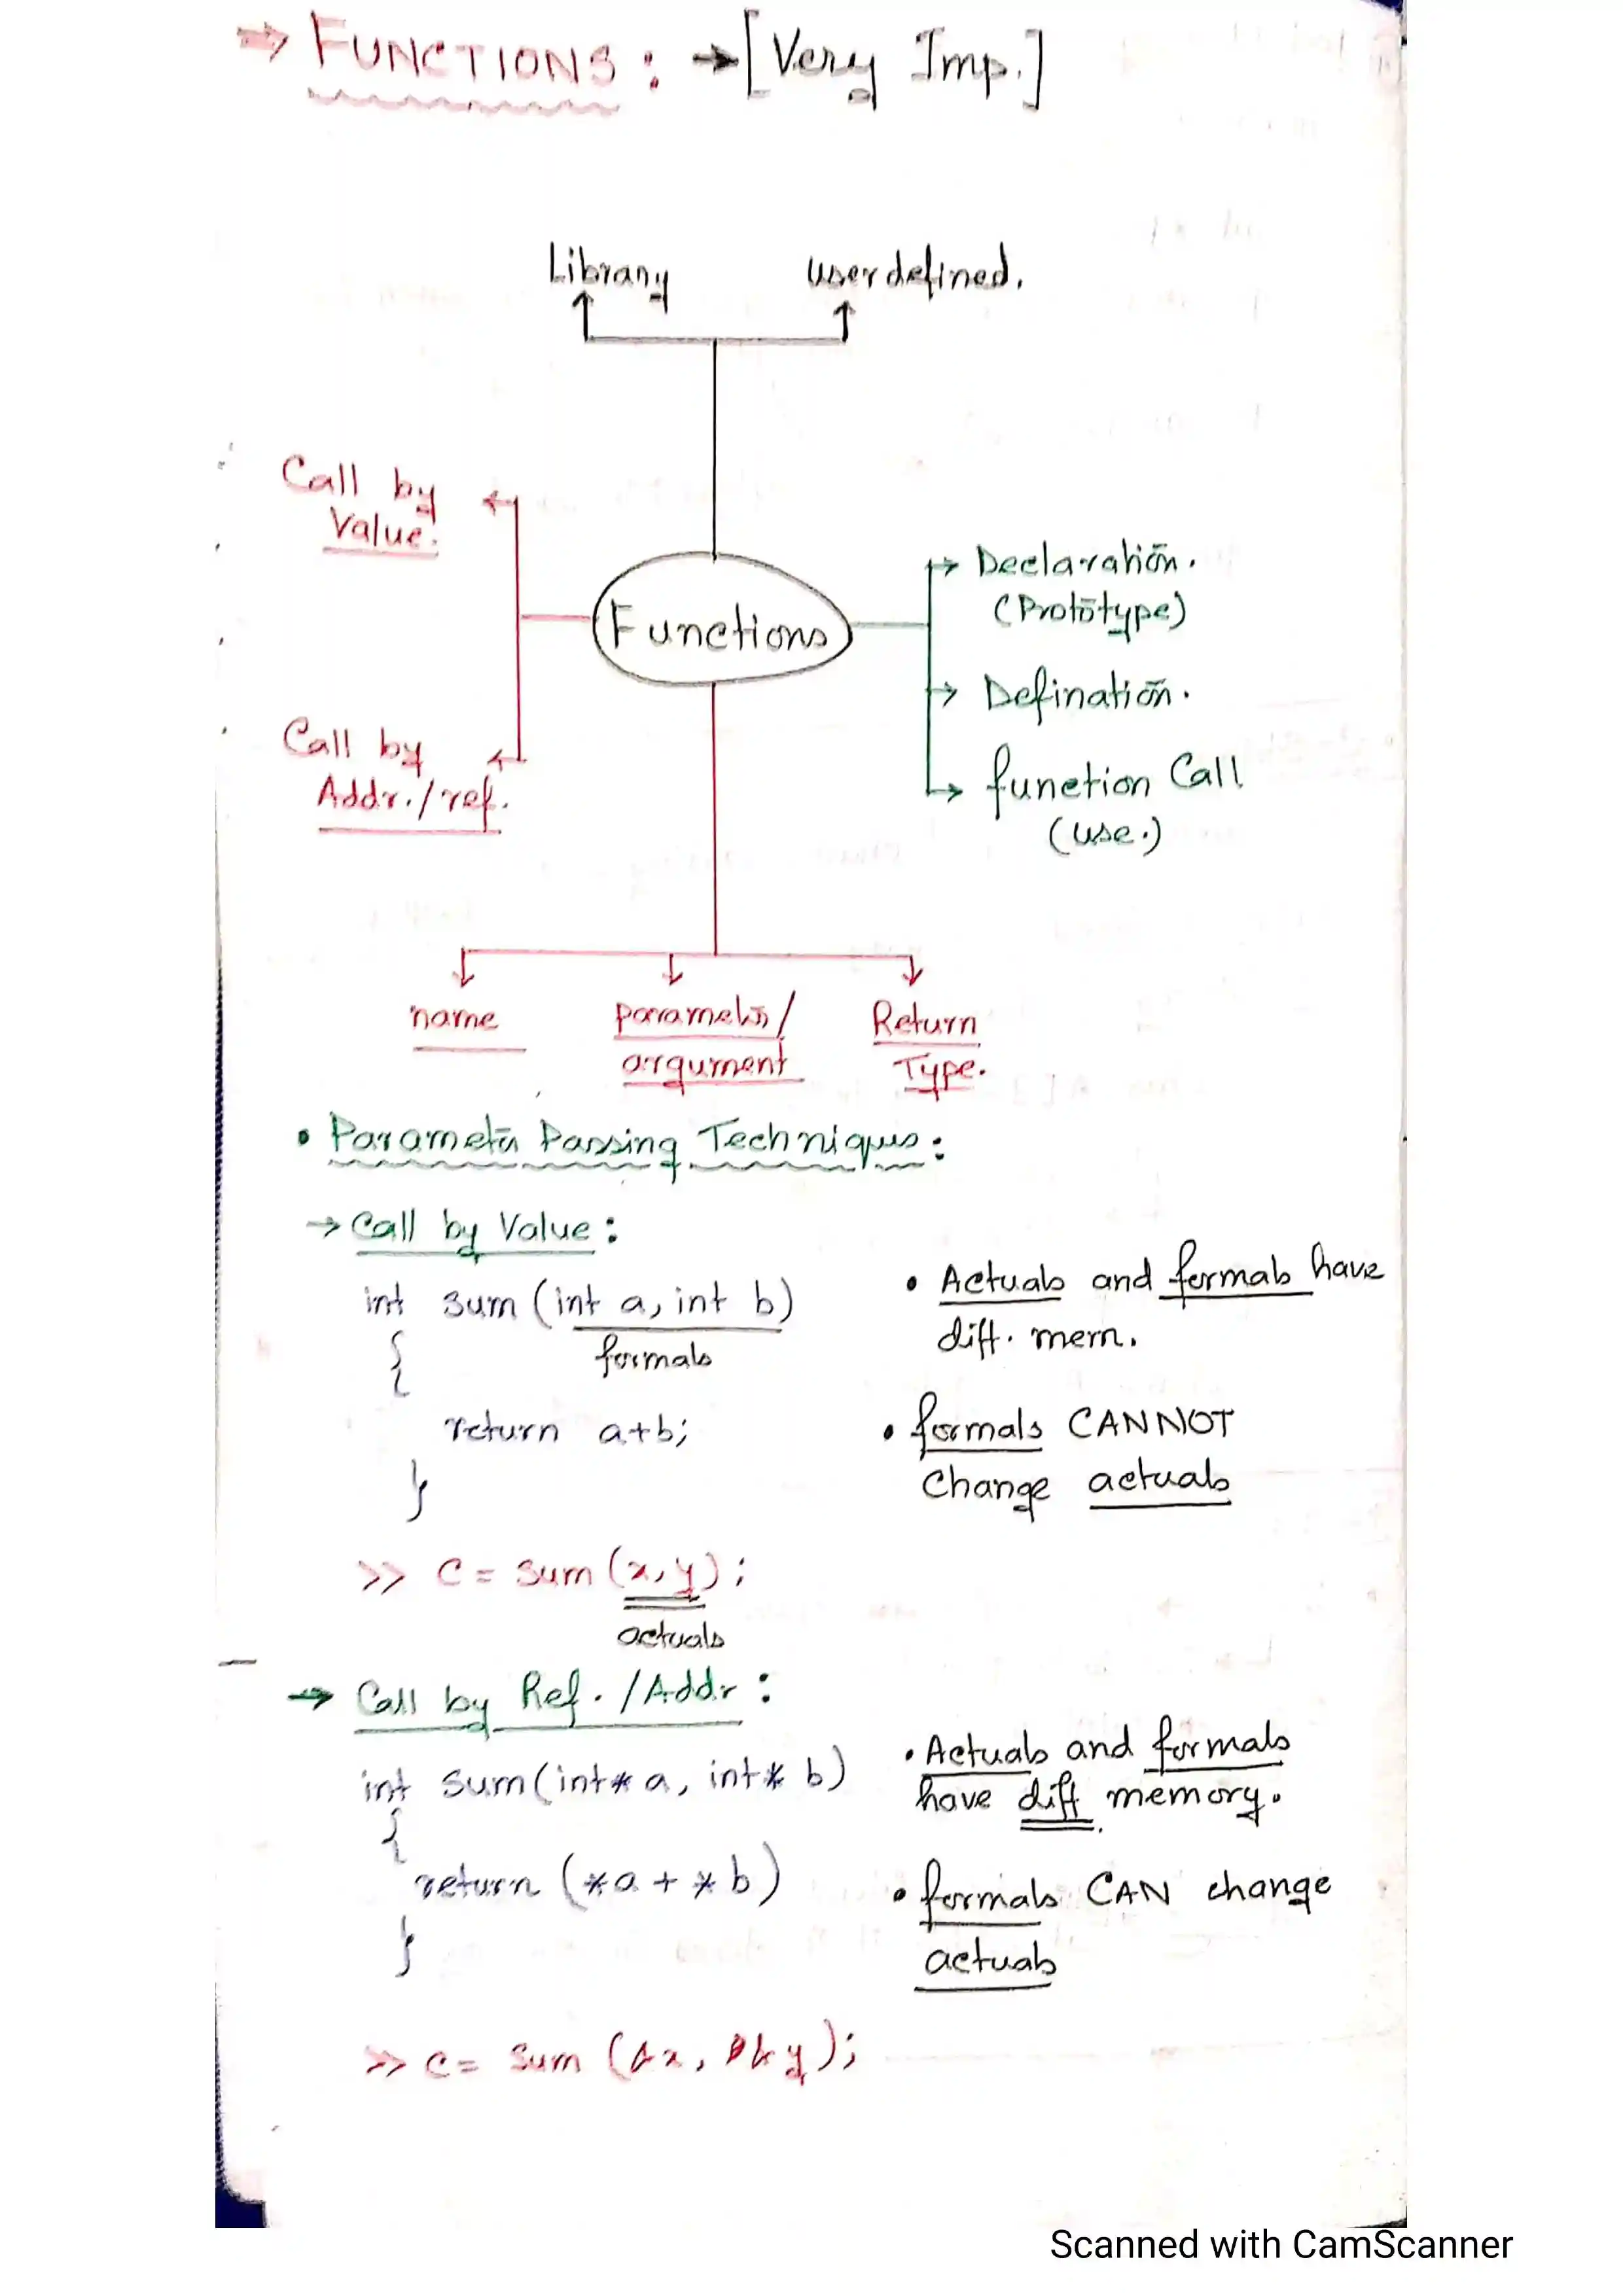 ⇒ FUNCTIONS : → [Very Imp.]
Library
Userdefined.
Call by
Value.
Declaration.
(Prototype)
Functions
Defination.
Call by
Addr./ref.
function Call
(use.)
name
parameter/
argument
Return
Type.
• Parameter Passing Techniques :
→ Call by Value :
int sum (int a, int b)
formals
{
return a+b;
}
• Actuals and formals have
diff. mem.
• formals CANNOT
Change actuals
>> C = Sum (x, y);
actuals
→ Call by Ref. / Addr :
int sum(int* a, int* b)
{
return (*a + *b)
}
• Actuals and formals
have diff memory.
• formals CAN change
actuals
>> C = Sum (&x, &y);
Scanned with CamScanner